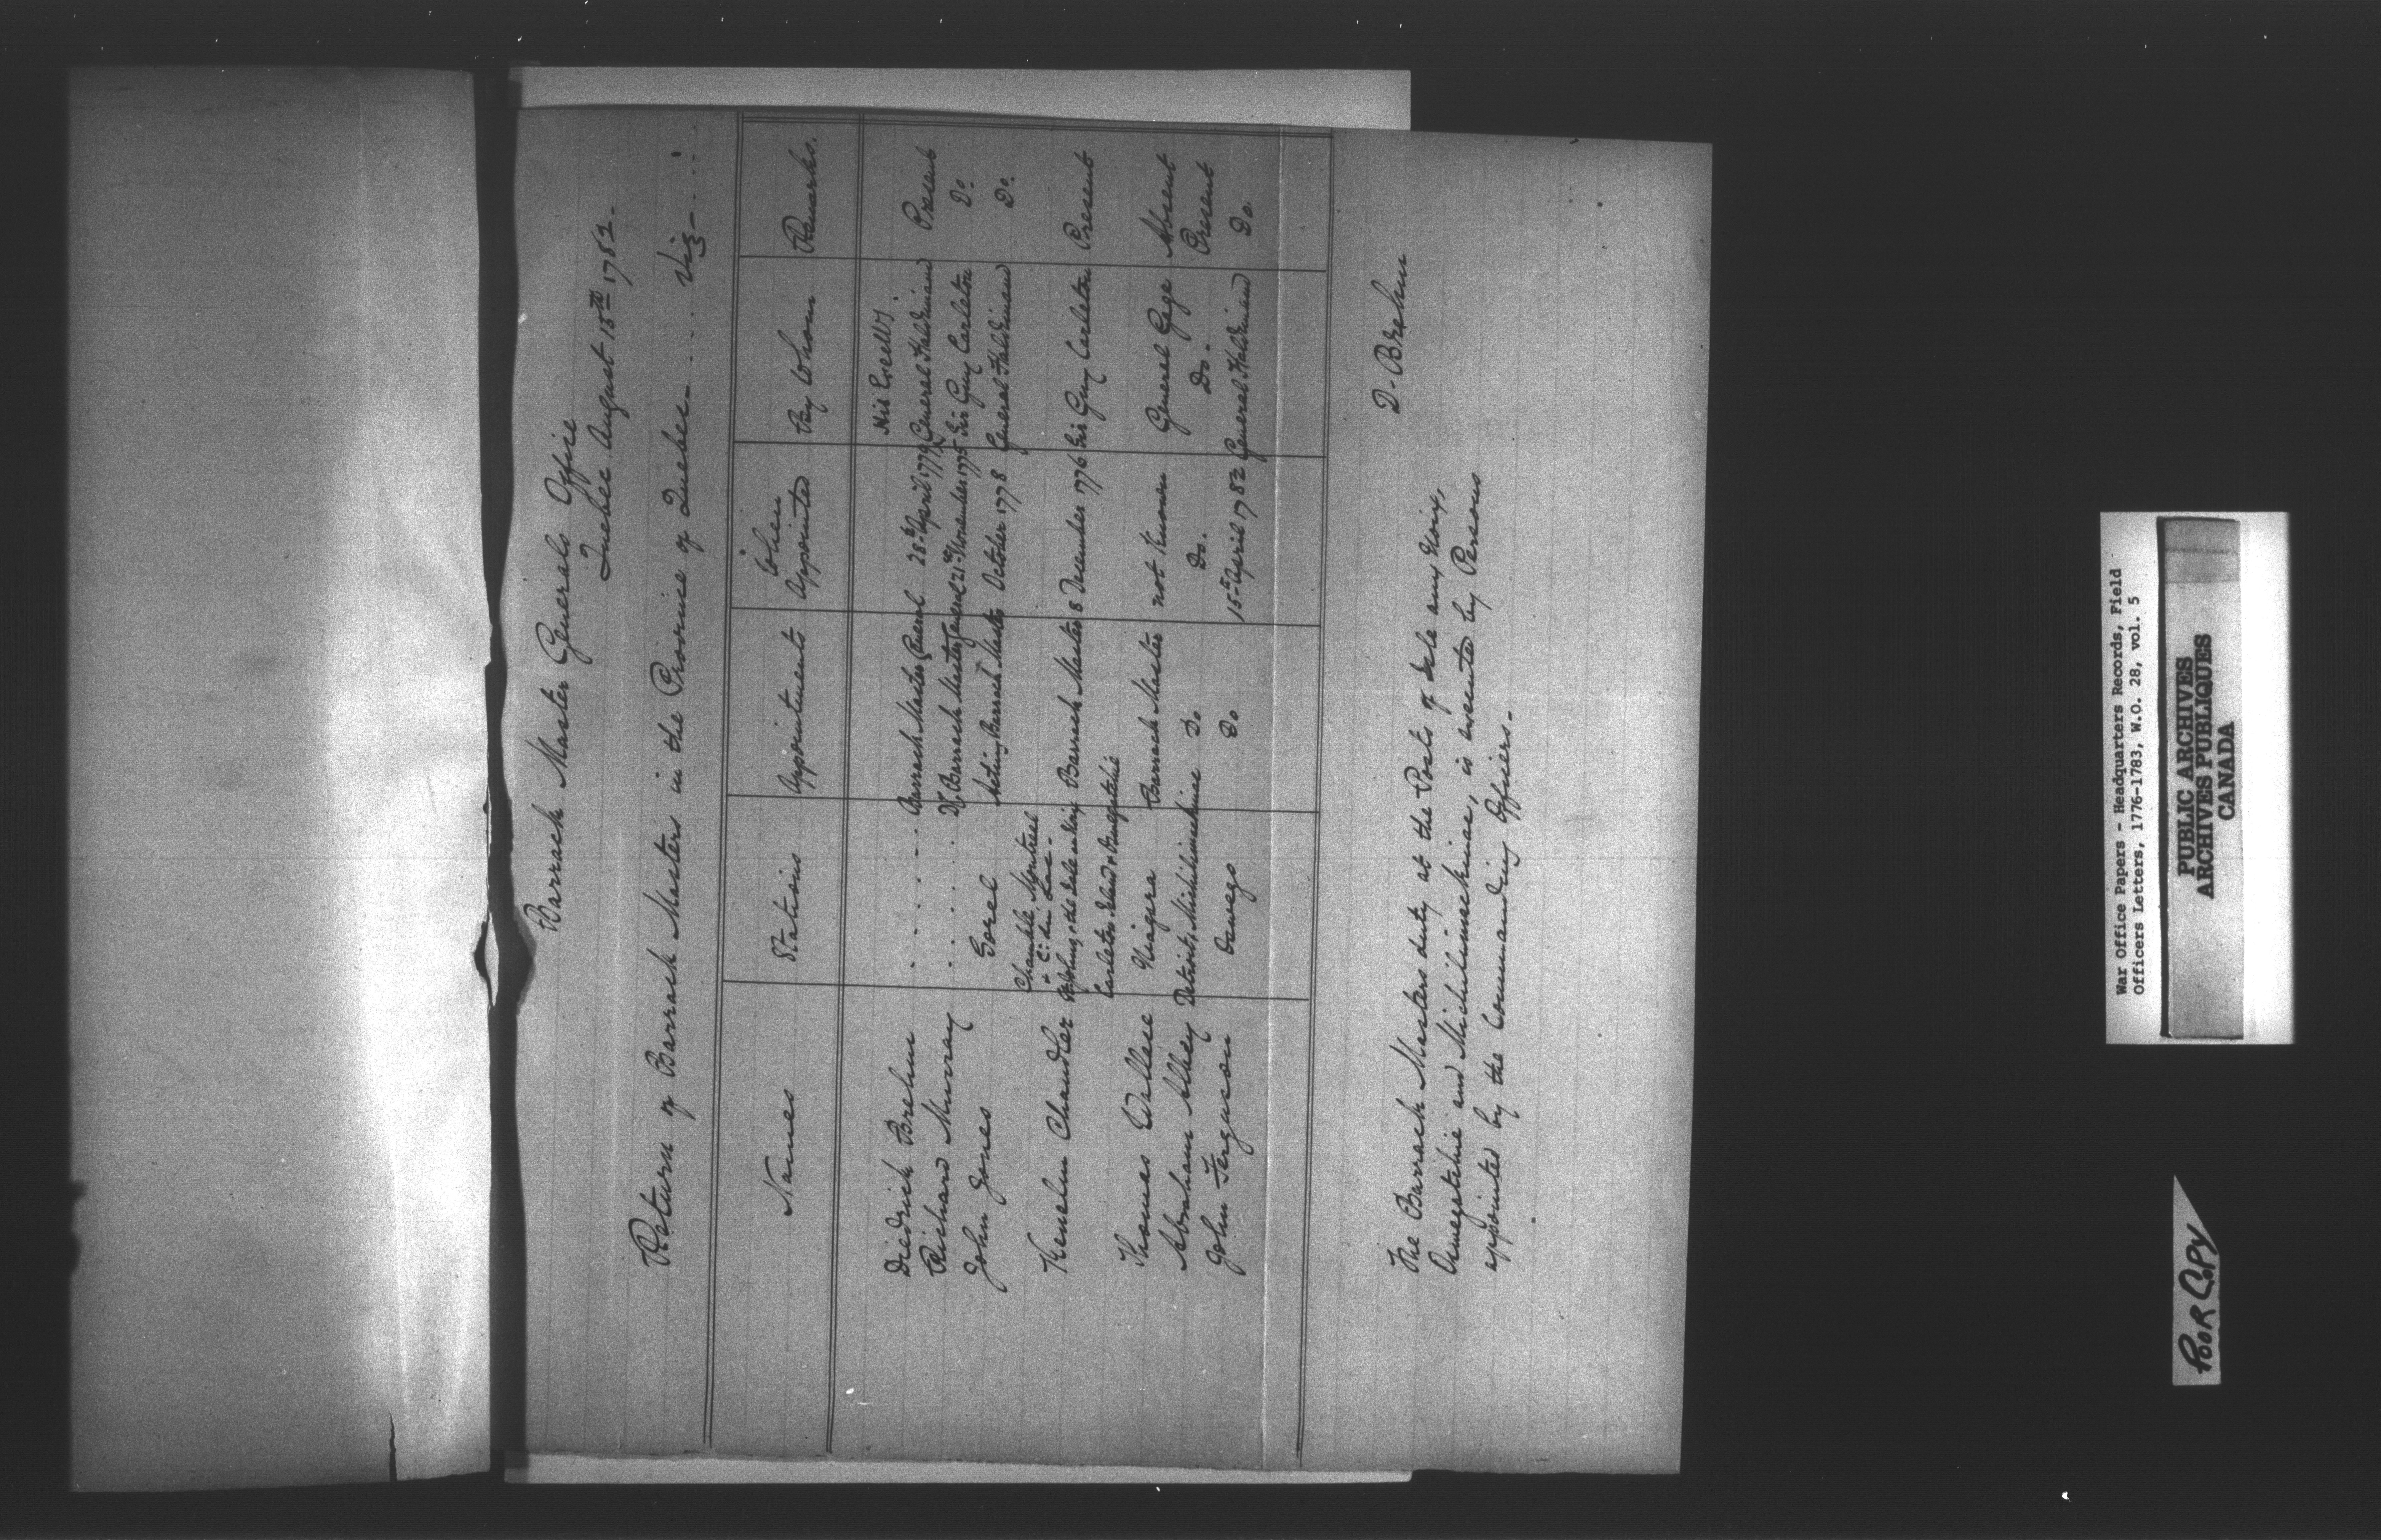 Barrack Master Generals Office
Quebec August 15th 1782-
Return of Barrack Masters in the Province of Quebec - . . . Viz - . . .
Names Stations Appointments When Appointed By Whom Remarks.
His Excelly.
Diedrich Brehm . . . . . Barrack Master General 28th April 1779 General Haldimand Present
Richard Murray . . . . Dy. Barrack Master General 21st November 1775 Sir Guy Carleton Do.
John Jones Sorel Acting Barrack Master October 1778 General Haldimand Do.
Chamblé, Montreal
& C: du Lac -
Kenelm Chandler St Johns, & the Isle au Noix Barrack Master 8 December 1776 Sir Guy Carleton Present
Carleton Island & Oswegatchie
Thomas Wallace Niagara Barrack Master not Known General Gage Absent
Abraham Detroit, Michilimackinac Do Do. Do. Present
John Ferguson Oswego Do 15th April 1782 General Haldimand Do.
The Barrack Masters duty at the Posts of Isle aux Noix,
Oswegatchie and Michilimackinac, is executed by Persons
appointed by the Commanding Officers. -
D. Brehm
War Office Papers - Headquarters Records, Field
Officers Letters, 1776-1783, W.O. 28, vol. 5
PUBLIC ARCHIVES
ARCHIVES PUBLIQUES
CANADA
POOR COPY